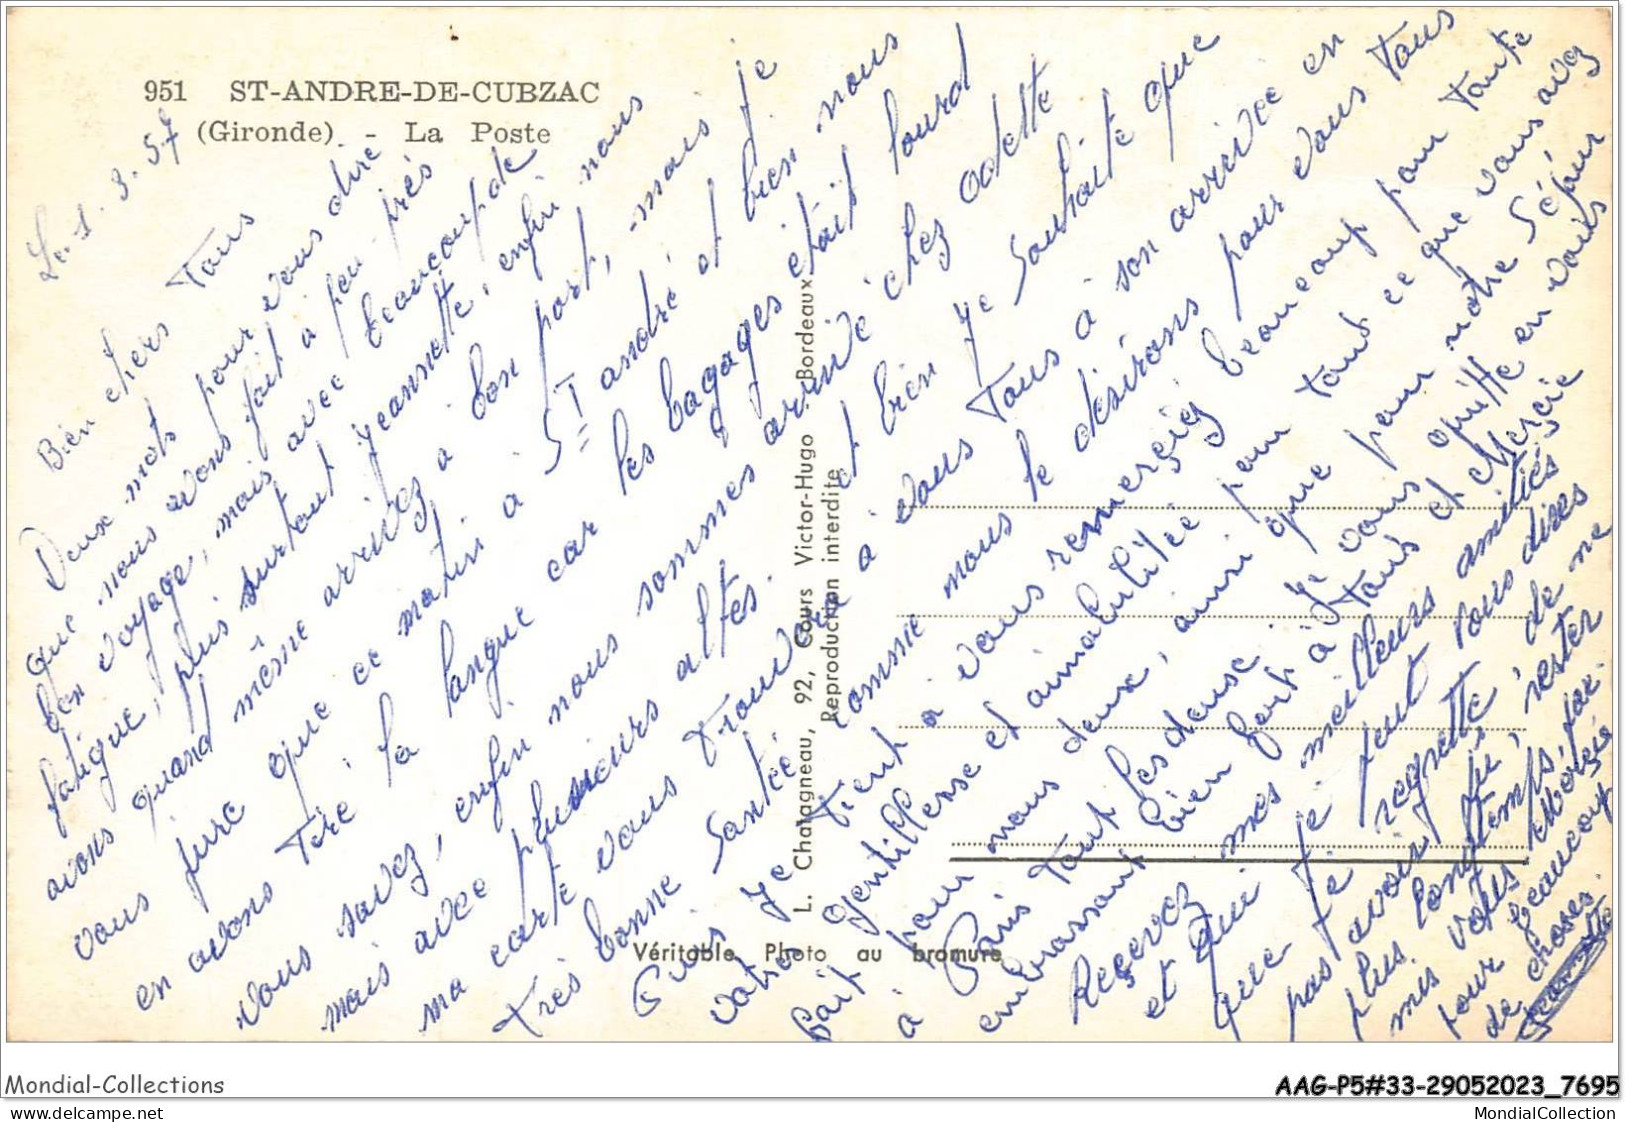 951 ST-ANDRE-DE-CUBZAC
(Gironde) - La Poste
Le. 1. 3. 57
Bien chers Tous
Deux mots pour vous dire
que nous avons fait a peu près
bon voyage, mais avec beaucoup de
fatigue, plus surtout Jeannette, enfin nous
avons quand même arrivez a bon port, mais je
vous jure que ce matin a St andré et bien nous
en avons Tiré la langue car les bagages était lourd
vous savez, enfin nous sommes arrivé chez odette
mais avec plusieurs altes. et bien je Souhaite que
ma carte vous trouvera a vous Tous a son arrivée en
très bonne Santée comme nous le désirons pour vous tous
Puis je tient a vous remerçiez beaucoup pour toute
votres gentillesse et aimabilitée pour tout ce que vous avez
fait pour nous deux, ainsi que pour notre Séjour
a Paris tout les deux. Je vous quitte en vous
embrassant bien fort à Tous et Merçie
Reçevez mes meilleurs amitiés
et Qui je peut vous dires
que je regrette de ne
pas avoir pu rester
plus longtemps, par
mis vous. Merçie
pour beaucoup
de choses.
Jeannette
L. Chatagneau, 92, Cours Victor-Hugo Bordeaux
Reproduction interdite
Véritable Photo au bromure
Mondial-Collections
AAG-P5#33-29052023_7695
www.delcampe.net
MondialCollection